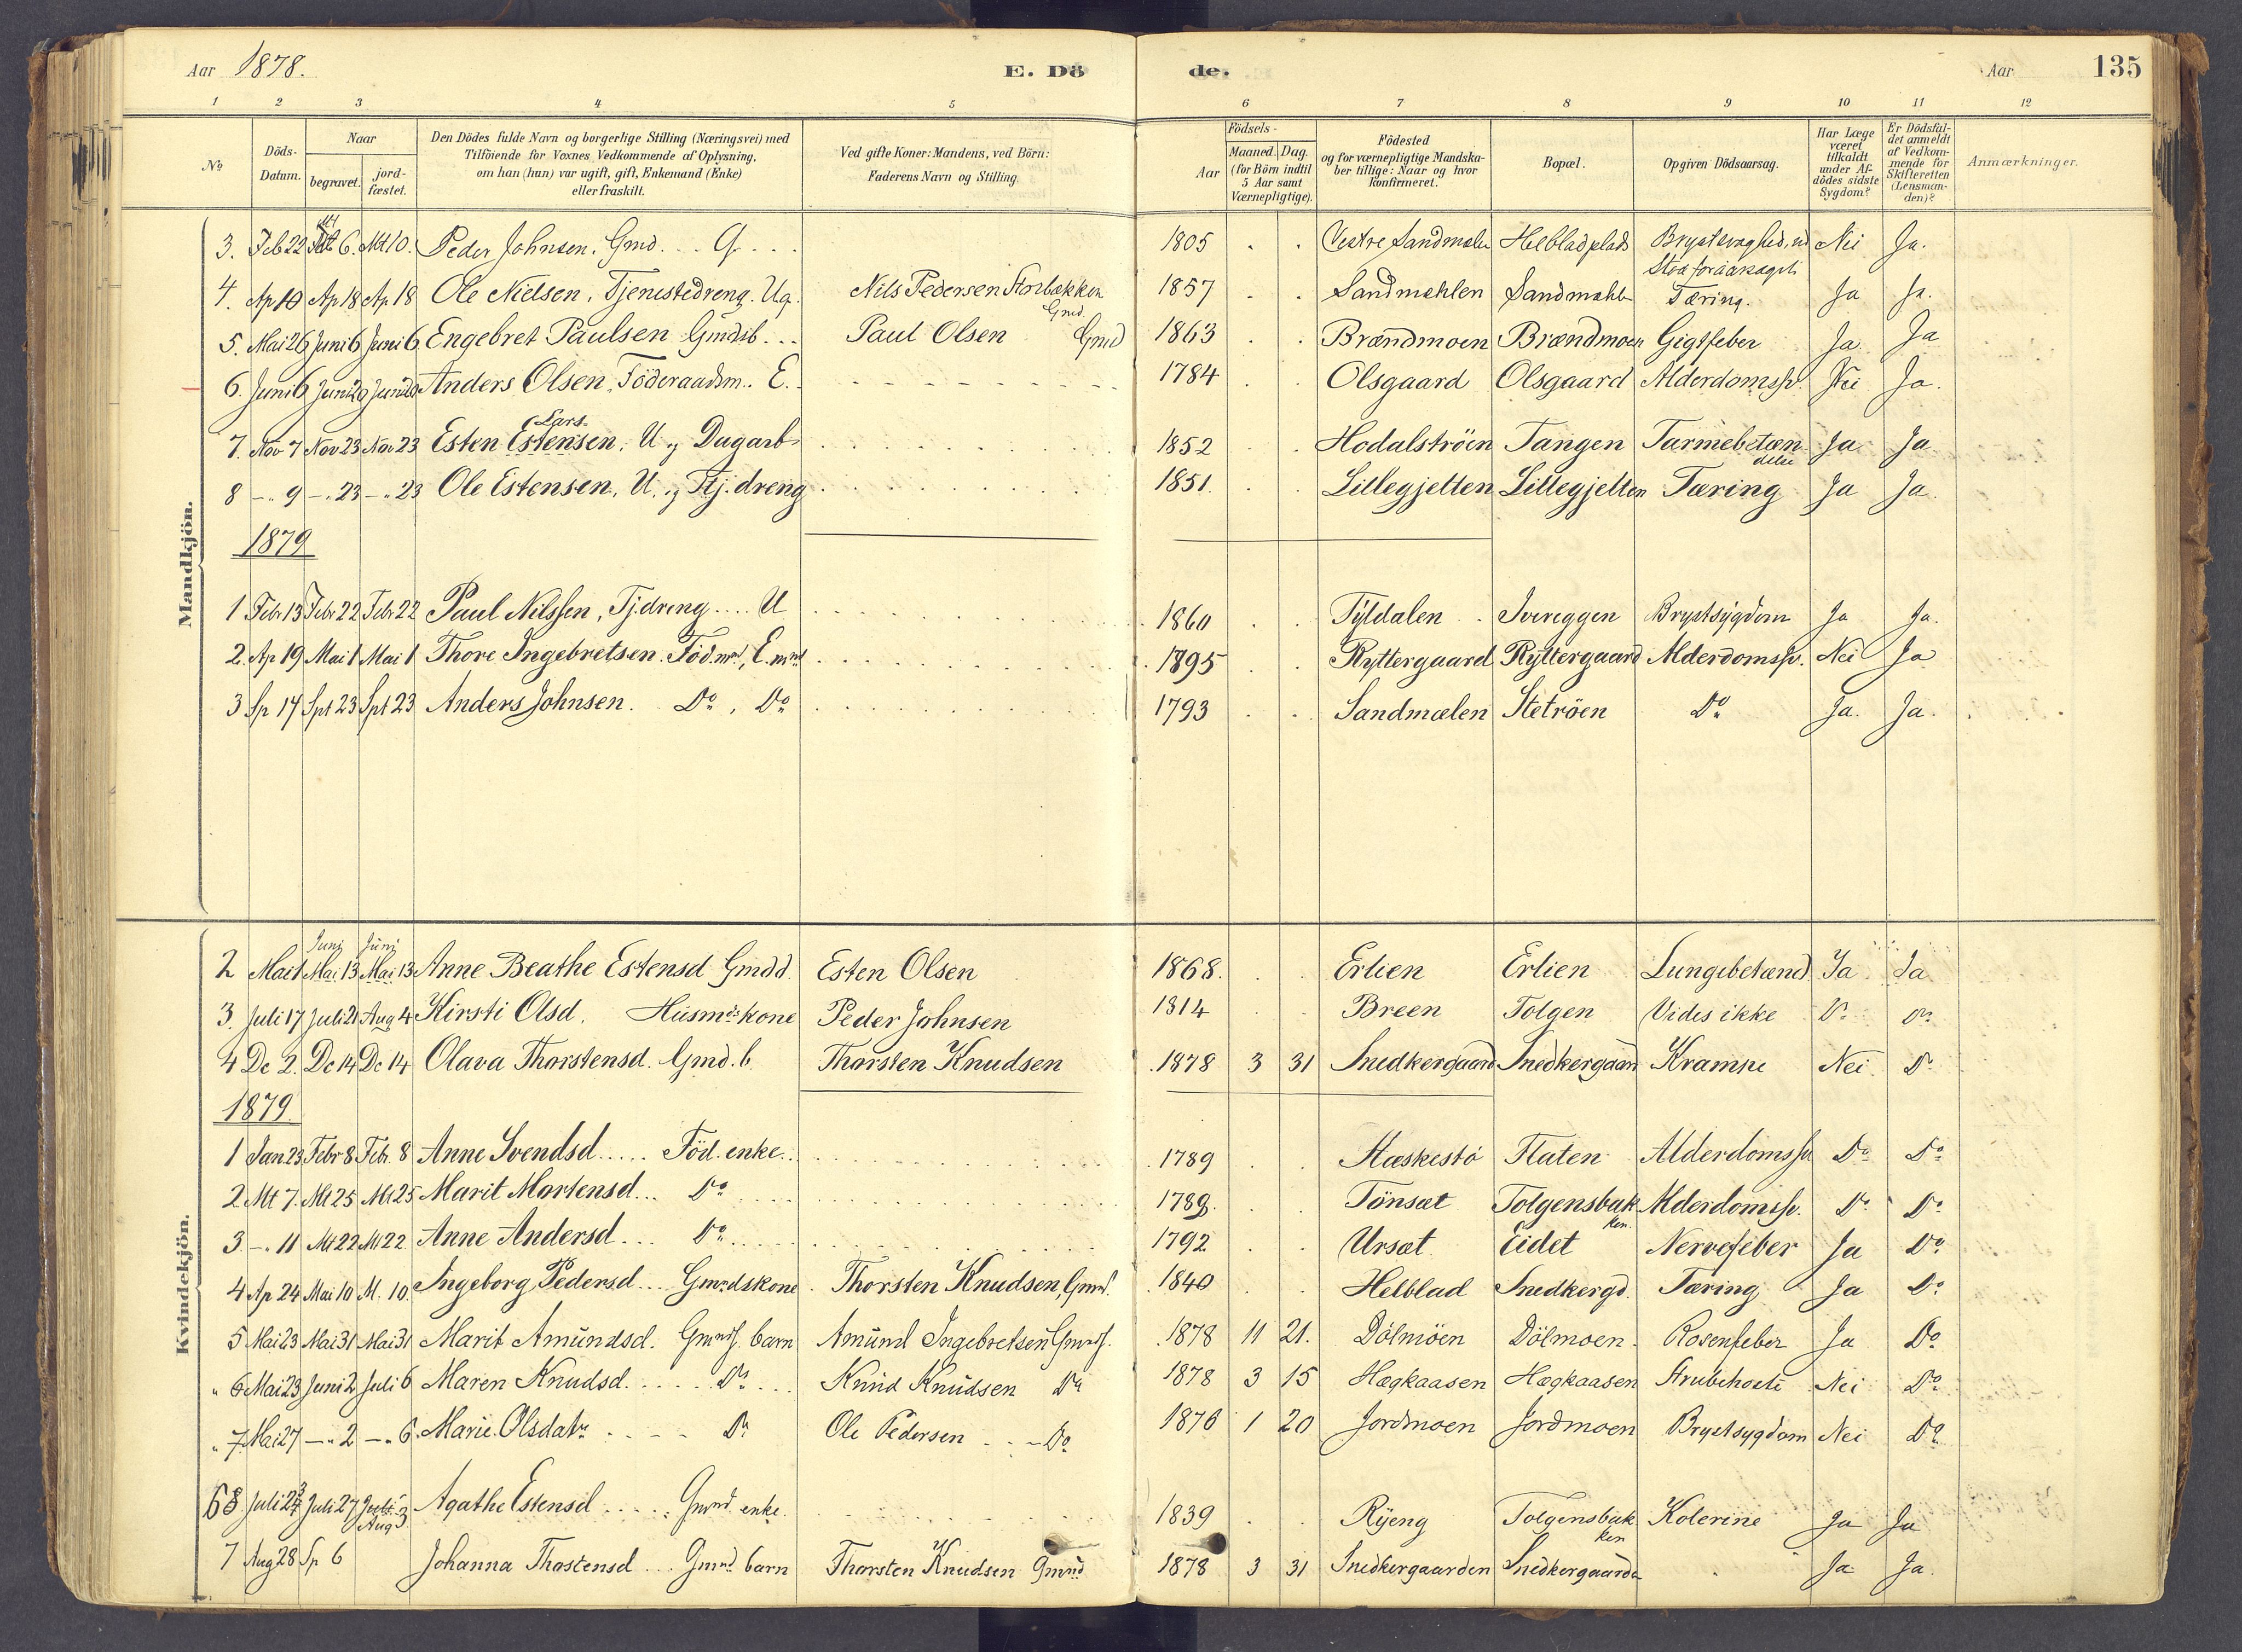 Aar 1878. E. Dö de. Aar 135
1 2 3 4 5 6 7 8 9 10 11 12
No
Döds-Datum.
Naar
begravet.
jord-fæstet.
Den Dödes fulde Navn og borgerlige Stilling (Næringsvei) med
Tilföiende for Voxnes Vedkommende af Oplysning,
om han (hun) var ugift, gift, Enkemand (Enke)
eller fraskilt.
Ved gifte Koner: Mandens, ved Börn:
Faderens Navn og Stilling.
Födsels-
Aar
Maaned. Dag.
(for Börn indtil
5 Aar samt
Værnepligtige).
Födested
og for værnepligtige Mandska-
ber tillige: Naar og hvor
konfirmeret.
Bopæl.
Opgiven Dödsaarsag.
Har Læge
været
tilkaldt
under Af-
dödes sidste
Sygdom?
Er Dödsfal-
det anmeldt
af Vedkom-
mende for
Skifteretten
(Lensman-
den)?
Anmærkninger.
Mandkjön.
3. Feb 22 Mt 6. Mt 10. Peder Johnsen. Gmd. G. 1805 Vestre Sandmælen Helbladplads Nei Ja.
4. Ap 10 Ap 18 Ap 18 Ole Nielsen, Tjenestedreng. Ug. Nils Pedersen Storbækken Gmd. 1857 Sandmehlen Sandmehlen Tæring. Ja Ja.
5. Mai 26 Juni 6 Juni 6 Engebret Paulsen Gmdsb. Paul Olsen Gmd 1863 Brændmoen Brændmoen Gigtfeber Ja Ja
6. Juni 6 Juni 20 Juni 20 Anders Olsen, Föderaadsm. E. 1784 Olsgaard Olsgaard Alderdomssv. Nei Ja.
Lars
7. Nov 7 Nov 23 Nov 23 Esten Estensen, U., Dagarb. 1852 Hodalströen Tangen Tarmebetæn delse Ja Ja
8 —„ 9 —„ 23 —„ 23 Ole Estensen, U., Tj. dreng 1851. Lillegjelten Lillegjelten Tæring Ja Ja.
1879
1 Febr 13 Febr 22 Febr 22 Paul Nilssen, Tj.dreng U 1860 Tyldalen Ivereggen Brystsygdom Ja Ja.
2. Ap 19 Mai 1 Mai 1 Thore Ingebretsen. Föd.md, E.md 1795 Ryttergaard Ryttergaard Alderdomssv. Nei Ja
3 Sp 14 Spt 23 Spt 23 Anders Johnsen. Do, Do 1793 Sandmælen Stetröen Do Ja. Ja.
Kvindekjön.
Juni Juni
2 Mai 1 Mai 13 Mai 13 Anne Beathe Estensd Gmdd. Esten Olsen 1868. Erlien Erlien Lungebetænd. Ja Ja
3. Juli 17 Juli 21 Aug 4 Kirsti Olsd. Husmdskone Peder Johnsen 1814 Breen Tolgen Vides ikke Do Do
4 Dc 2. Dc 14 Dc 14 Olava Thorstensd. Gmd. b. Thorsten Knudsen 1878 3 31 Snedkergaard Snedkergaard Krampe Nei Do
1879.
1 Jan 23 Febr 8 Feb. 8 Anne Svendsd. Föd. enke. 1789 Flaten Alderdomssv. Do Do
2 Mt 7. Mt 25 Mt 25 Marit Mortensd. Do 1789. Tönsæt Tolgensbakken Alderdomssv. Do Do
3. —„ 11 Mt 22 Mt 22 Anne Andersd. Do 1792 Ursæt Eidet Nervefeber Ja Do
4 Ap 24 Mai 10 M. 10. Ingeborg Pedersd. Gmdskone Thorsten Knudsen, Gmd. 1840 Helblad Snedkergd. Tæring Ja Do
5 Mai 23 Mai 31 Mai 31 Marit Amundsd. barn Amund Ingebretsen 1878 11 21. Dölmöen Dölmoen. Rosenfeber Ja Do
„ 6 Mai 23 Juni 2 Juli 6 Maren Knudsd. Do Knud Knudsen Do 1878 3 15 Hægkaasen Hægkaasen Strubehoste Nei Do
„ 7 Mai 27 —„ 2 —„ 6. Marie Olsdatr. Do Ole Pedersen Do 1876 1 20 Jordmoen Jordmoen Brystsygdom Nei Do
8 Juli 23 Juli 27 Aug 3 Agathe Estensd. Gmd. enke. 1839 Ryeng Tolgensbakken Kolerine Ja Ja
7 Aug 28 Sp 6 Johanna Thostensd. Gmd barn Thorsten Knudsen Gmd 1878 3 31 Snedkergaarden Snedkergaarden Ja Ja.